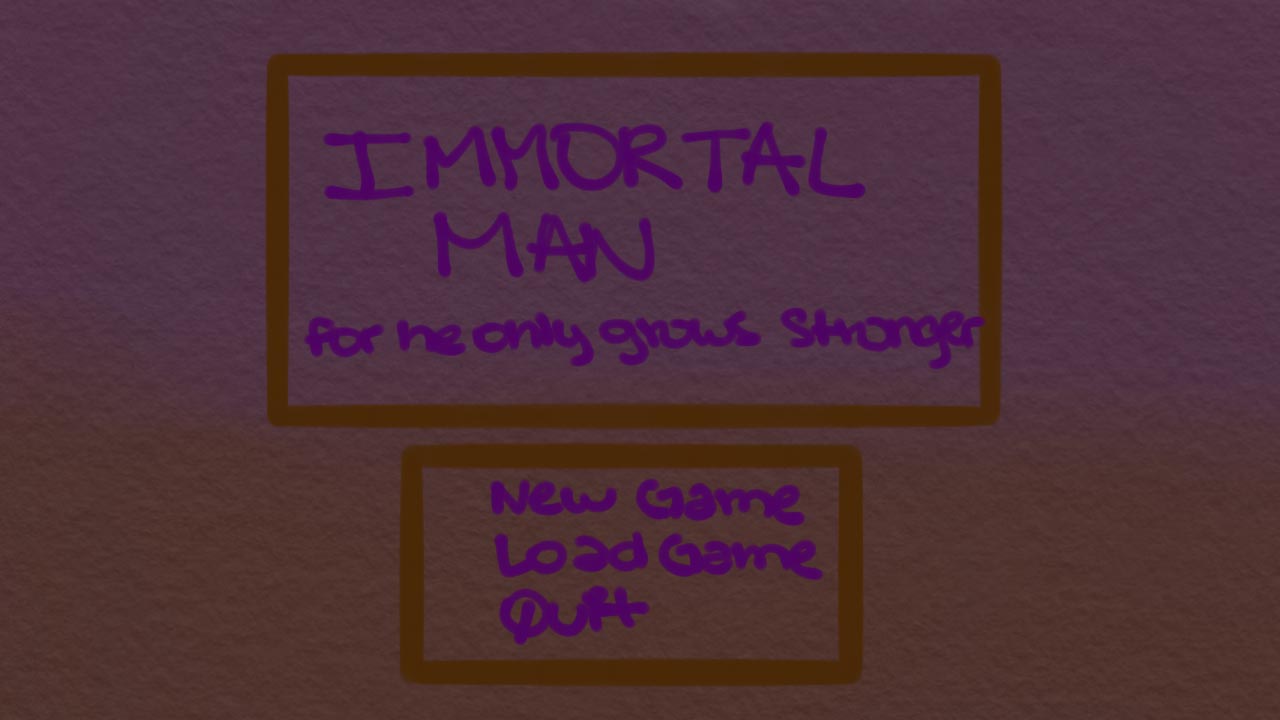 IMMORTAL
MAN
for he only grows Stronger
New Game
Load Game
Quit